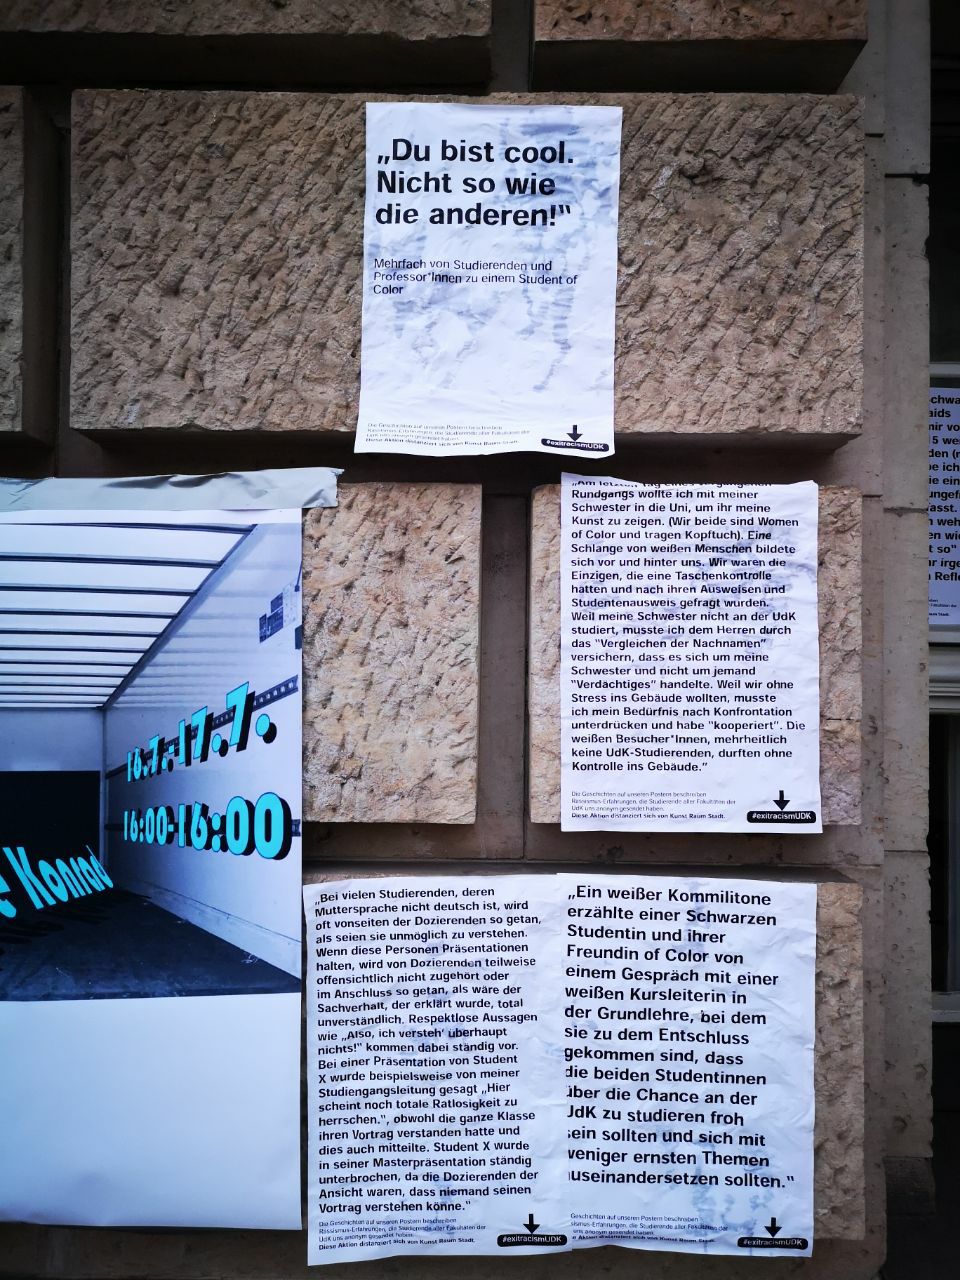 „Du bist cool.
Nicht so wie
die anderen!“
Mehrfach von Studierenden und
Professor*Innen zu einem Student of
Color
Die Geschichten auf unseren Postern beschreiben
Rassismus-Erfahrungen, die Studierende aller Fakultäten der
UdK uns anonym gesendet haben.
Diese Aktion distanziert sich von Kunst Raum Stadt.
#exitracismUDK
„Am letzten Tag eines vergangenen
Rundgangs wollte ich mit meiner
Schwester in die Uni, um ihr meine
Kunst zu zeigen. (Wir beide sind Women
of Color und tragen Kopftuch). Eine
Schlange von weißen Menschen bildete
sich vor und hinter uns. Wir waren die
Einzigen, die eine Taschenkontrolle
hatten und nach ihren Ausweisen und
Studentenausweis gefragt wurden.
Weil meine Schwester nicht an der UdK
studiert, musste ich dem Herren durch
das "Vergleichen der Nachnamen"
versichern, dass es sich um meine
Schwester und nicht um jemand
"Verdächtiges" handelte. Weil wir ohne
Stress ins Gebäude wollten, musste
ich mein Bedürfnis nach Konfrontation
unterdrücken und habe "kooperiert". Die
weißen Besucher*Innen, mehrheitlich
keine UdK-Studierenden, durften ohne
Kontrolle ins Gebäude.“
Die Geschichten auf unseren Postern beschreiben
Rassismus-Erfahrungen, die Studierende aller Fakultäten der
UdK uns anonym gesendet haben.
Diese Aktion distanziert sich von Kunst Raum Stadt.
#exitracismUDK
17.7.
16:00-16:00
Konrad
„Bei vielen Studierenden, deren
Muttersprache nicht deutsch ist, wird
oft vonseiten der Dozierenden so getan,
als seien sie unmöglich zu verstehen.
Wenn diese Personen Präsentationen
halten, wird von Dozierenden teilweise
offensichtlich nicht zugehört oder
im Anschluss so getan, als wäre der
Sachverhalt, der erklärt wurde, total
unverständlich. Respektlose Aussagen
wie „Also, ich versteh' überhaupt
nichts!“ kommen dabei ständig vor.
Bei einer Präsentation von Student
X wurde beispielsweise von meiner
Studiengangsleitung gesagt „Hier
scheint noch totale Ratlosigkeit zu
herrschen.“, obwohl die ganze Klasse
ihren Vortrag verstanden hatte und
dies auch mitteilte. Student X wurde
in seiner Masterpräsentation ständig
unterbrochen, da die Dozierenden der
Ansicht waren, dass niemand seinen
Vortrag verstehen könne.“
Die Geschichten auf unseren Postern beschreiben
Rassismus-Erfahrungen, die Studierende aller Fakultäten der
UdK uns anonym gesendet haben.
Diese Aktion distanziert sich von Kunst Raum Stadt.
#exitracismUDK
„Ein weißer Kommilitone
erzählte einer Schwarzen
Studentin und ihrer
Freundin of Color von
einem Gespräch mit einer
weißen Kursleiterin in
der Grundlehre, bei dem
sie zu dem Entschluss
gekommen sind, dass
die beiden Studentinnen
über die Chance an der
UdK zu studieren froh
sein sollten und sich mit
weniger ernsten Themen
auseinandersetzen sollten.“
Die Geschichten auf unseren Postern beschreiben
Rassismus-Erfahrungen, die Studierende aller Fakultäten der
UdK uns anonym gesendet haben.
Diese Aktion distanziert sich von Kunst Raum Stadt.
#exitracismUDK